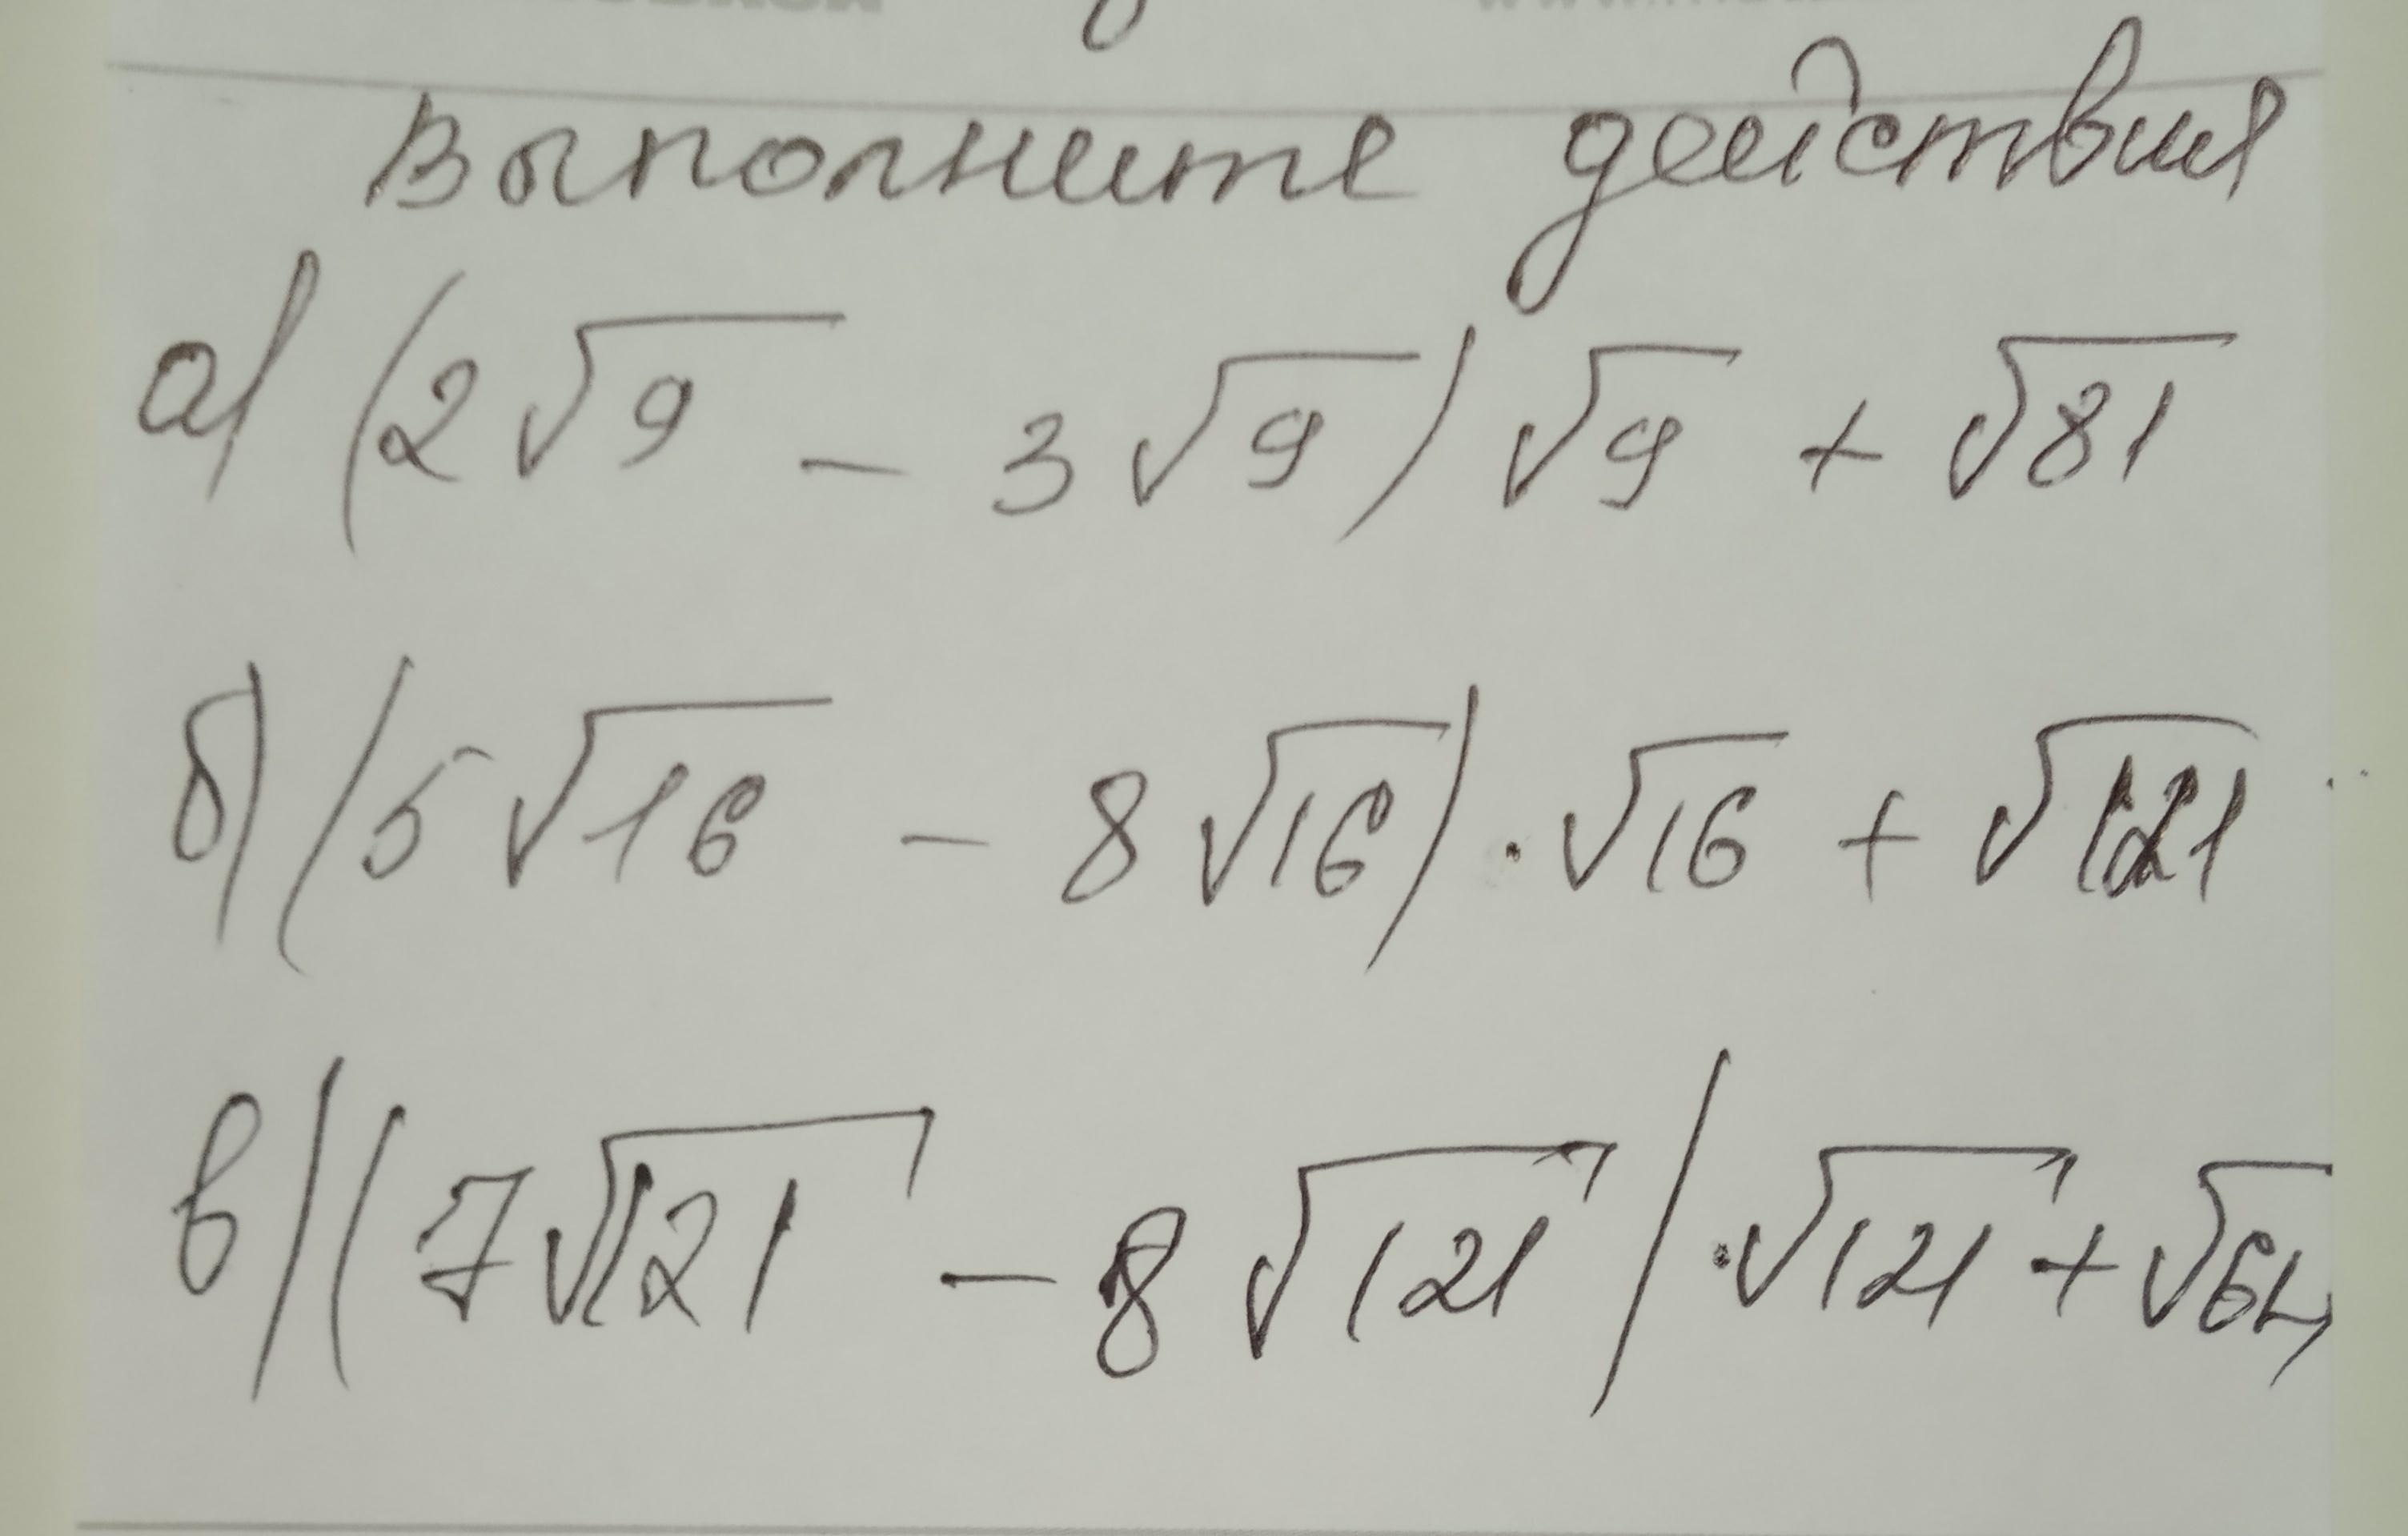 Выполните действия
а) (2√9 - 3√9) √9 + √81
б) (5√16 - 8√16) · √16 + √121
в) (7√121 - 8√121) · √121 + √64